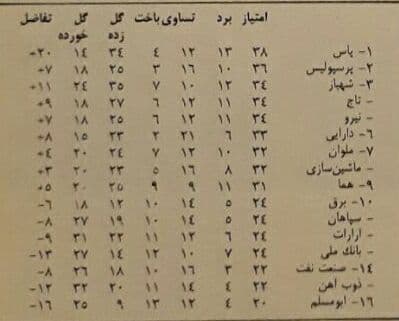 امتیاز برد تساوی باخت گل زده گل خورده تفاضل
۱- پاس ۳۸ ۱۳ ۱۲ ۴ ۳۴ ۱۴ +۲۰
۲- پرسپولیس ۳۶ ۱۰ ۱۶ ۳ ۲۵ ۱۸ +۷
۳- شهباز ۳۴ ۱۲ ۱۰ ۷ ۳۵ ۲۴ +۱۱
- تاج ۳۴ ۱۱ ۱۲ ۶ ۲۷ ۱۸ +۹
- نیرو ۳۴ ۱۱ ۱۲ ۶ ۲۵ ۱۸ +۷
۶- دارایی ۳۳ ۶ ۲۱ ۲ ۲۳ ۱۵ +۸
۷- ملوان ۳۲ ۱۰ ۱۲ ۷ ۲۴ ۲۰ +۴
- ماشین‌سازی ۳۲ ۸ ۱۶ ۵ ۲۳ ۲۰ +۳
۹- هما ۳۱ ۱۱ ۹ ۹ ۲۵ ۲۰ +۵
۱۰- برق ۲۴ ۵ ۱۴ ۱۰ ۱۲ ۱۸ -۶
- سپاهان ۲۴ ۵ ۱۴ ۱۰ ۱۹ ۲۷ -۸
- آرارات ۲۴ ۶ ۱۲ ۱۱ ۲۲ ۳۱ -۹
- بانک ملی ۲۴ ۷ ۱۰ ۱۲ ۱۴ ۲۷ -۱۳
۱۴- صنعت نفت ۲۲ ۳ ۱۶ ۱۰ ۱۸ ۲۶ -۸
- ذوب آهن ۲۲ ۴ ۱۴ ۱۱ ۲۰ ۳۲ -۱۲
۱۶- ابومسلم ۲۰ ۴ ۱۲ ۱۳ ۹ ۲۵ -۱۶